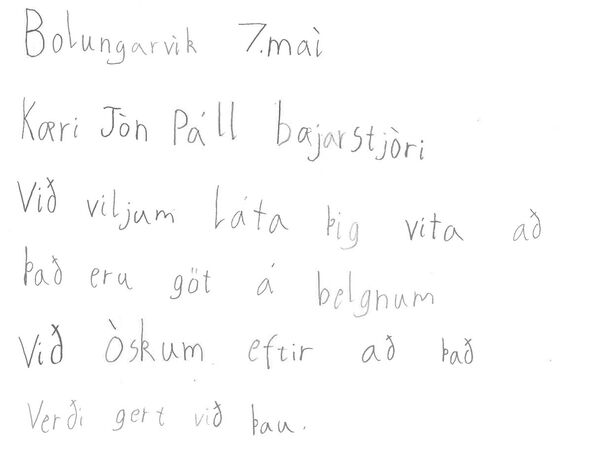 Bolungarvik 7.maì
Kæri Jòn Páll bæjarstjòri
Við viljum Láta þig vita að
það eru göt á belgnum
Við Òskum eftir að það
Verði gert við þau.